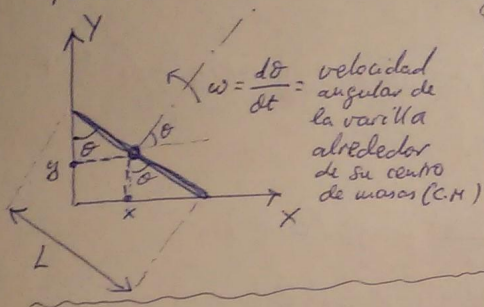 Y
ω = dθ/dt = velocidad
angular de
la varilla
alrededor
de su centro
de masas (C.M)
θ
θ
y
θ
x
X
L